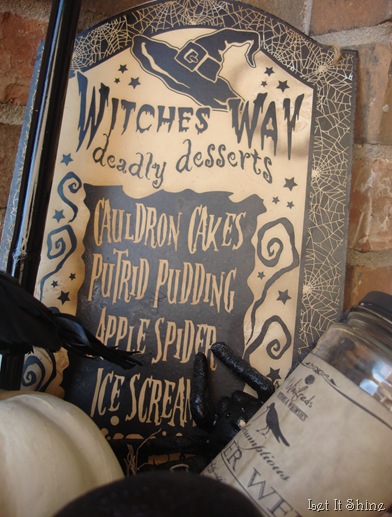 WITCHES WAY
deadly desserts
CAULDRON CAKES
PUTRID PUDDING
APPLE SPIDER
ICE SCREAM
Let It Shine